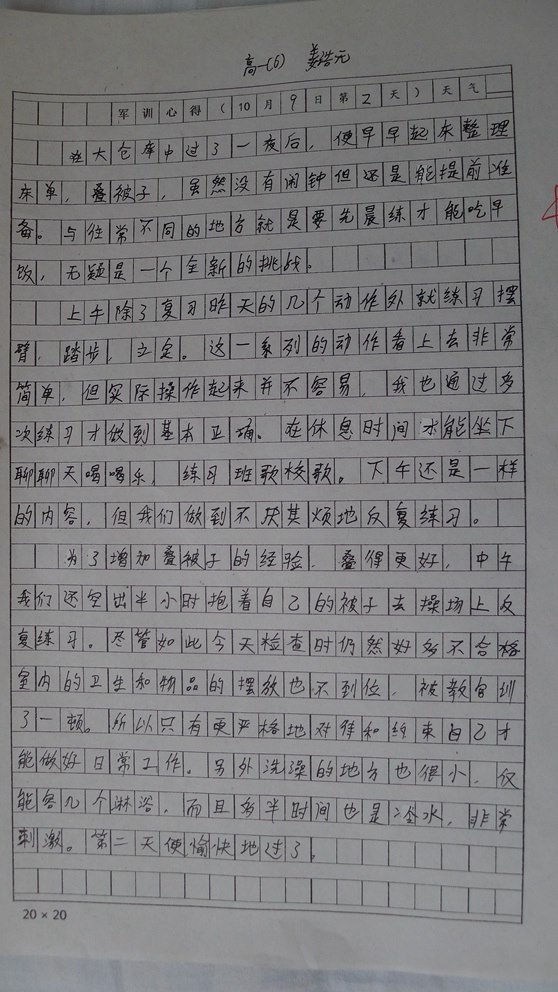 高一(6) 姜浩元
军训心得(10月9日第2天)天气
在大仓库中过了一夜后,便早早起来整理
床单,叠被子,虽然没有闹钟但还是能提前准
备。与往常不同的地方就是要先晨练才能吃早
饭,无疑是一个全新的挑战。
上午除了复习昨天的几个动作外就练习摆
臂,踏步,立定。这一系列的动作看上去非常
简单,但实际操作起来并不容易,我也通过多
次练习才做到基本正确。在休息时间才能坐下
聊聊天喝喝乐,练习班歌校歌。下午还是一样
的内容,但我们做到不厌其烦地反复练习。
为了增加叠被子的经验,叠得更好,中午
我们还空出半小时抱着自己的被子去操场上反
复练习。尽管如此今天检查时仍然好多不合格
室内的卫生和物品的摆放也不到位,被教官训
了一顿。所以只有更严格地对待和约束自己才
能做好日常工作。另外洗澡的地方也很小,仅
能容几个淋浴,而且多半时间也是冷水,非常
刺激。第二天便愉快地过了。
20×20